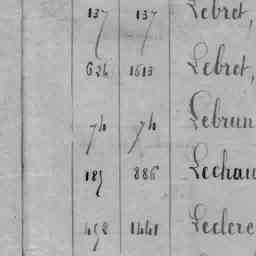 137 137 Lebret,
624 1613 Lebret,
74 74 Lebrun
187 886 Lechau
458 1441 Leclerc